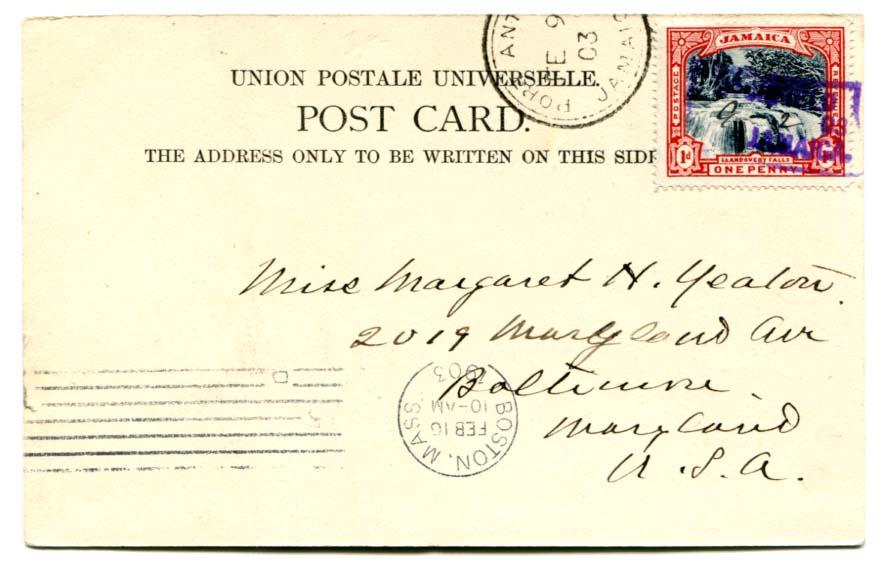 PORT ANT
FE 9
03
JAMAIC
JAMAICA
POSTAGE
LLANDOVERY FALLS
1d
ONE PENNY
JAMAICA
UNION POSTALE UNIVERSELLE.
POST CARD.
THE ADDRESS ONLY TO BE WRITTEN ON THIS SIDE
Miss Margaret H. Yeaton.
2019 Maryland Av
Baltimore
Maryland
U.S.A.
BOSTON, MASS.
FEB 16
10-AM
1903
D